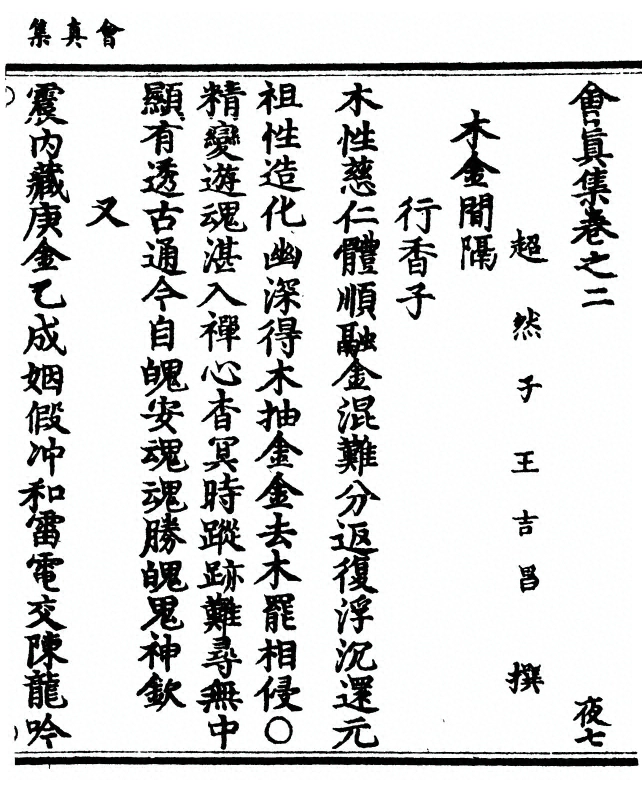 會真集
會真集卷之二
夜七
超然子王吉昌撰
木金間隔
行香子
木性慈仁體順融金混難分返復浮沉還元
祖性造化幽深得木抽金金去木罷相侵〇
精變遊魂湛入禪心杳冥時蹤跡難尋無中
顯有透古通今自魄安魂魂勝魄鬼神欽
又
震內藏庚金乙成姻假冲和雷電交陳龍吟